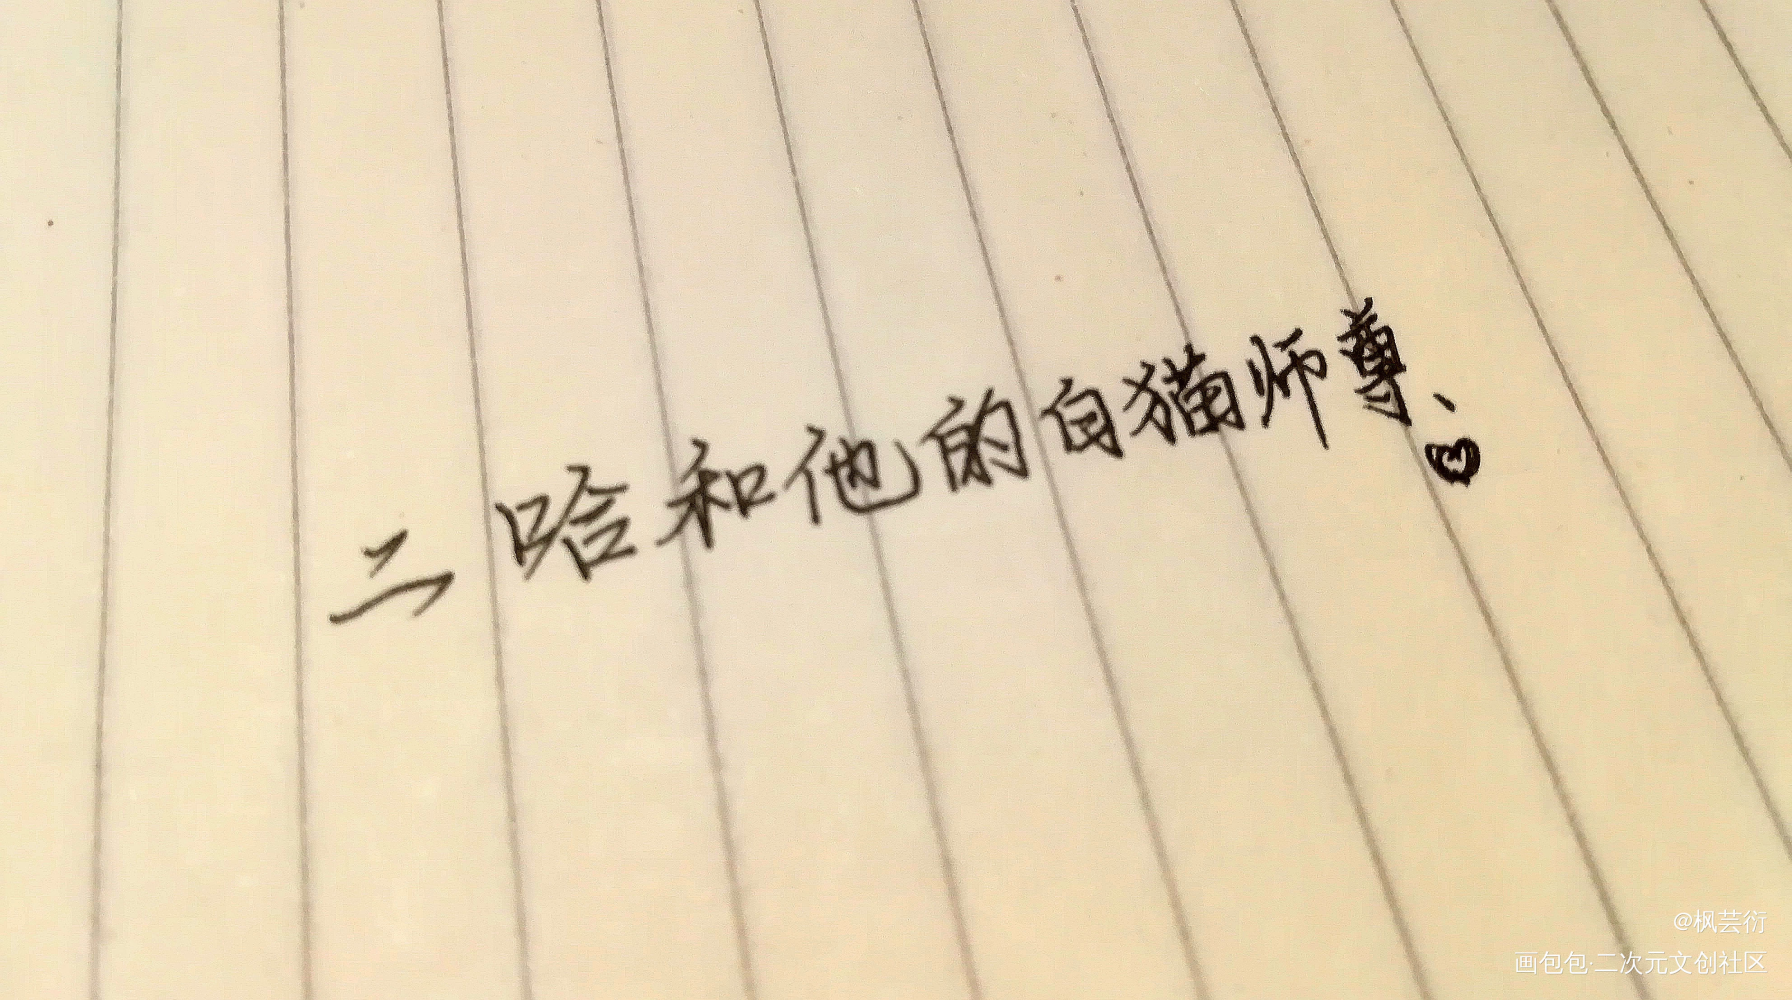 二哈和他的白猫师尊、
@枫芸衍
画包包·二次元文创社区